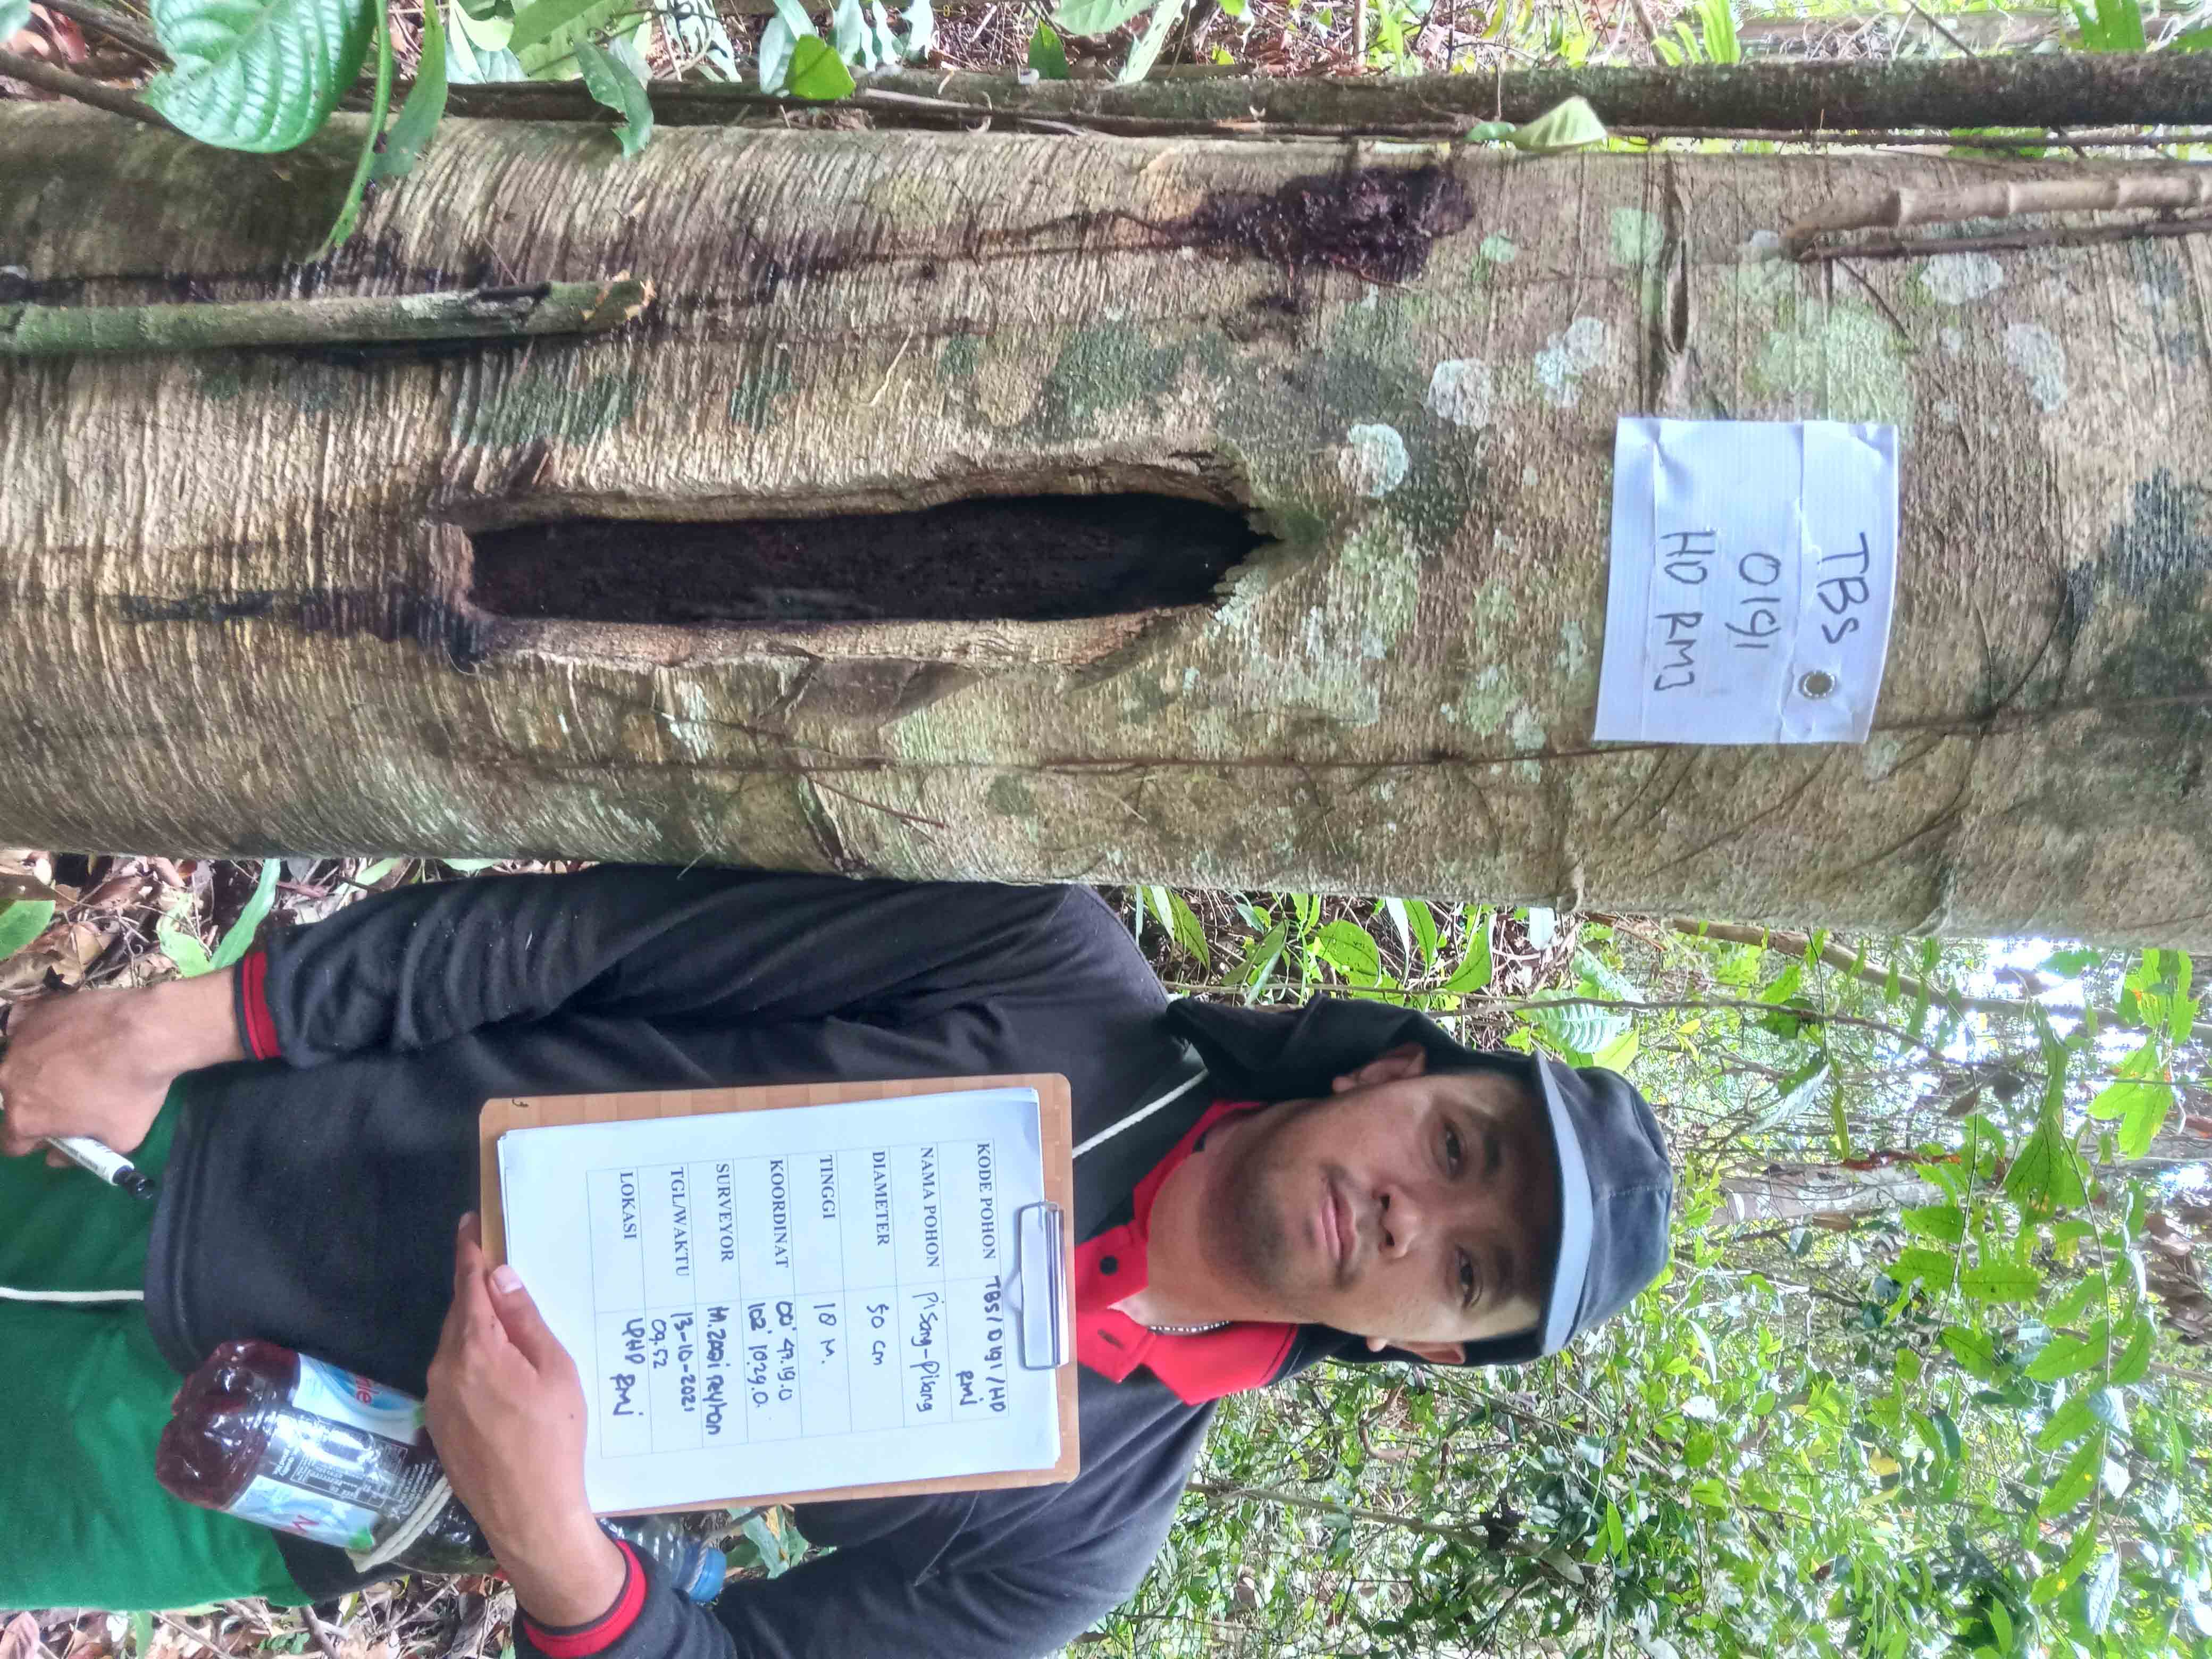 TBS
0191
HD RMJ
KODE POHON TBS/0191/HD RMJ
NAMA POHON Pisang-Pisang
DIAMETER 50 cm
TINGGI 18 M.
KOORDINAT 00° 49.19.0
102° 10.29.0.
SURVEYOR
TGL/WAKTU 13-10-2021
09.52
LOKASI LPHD RMJ